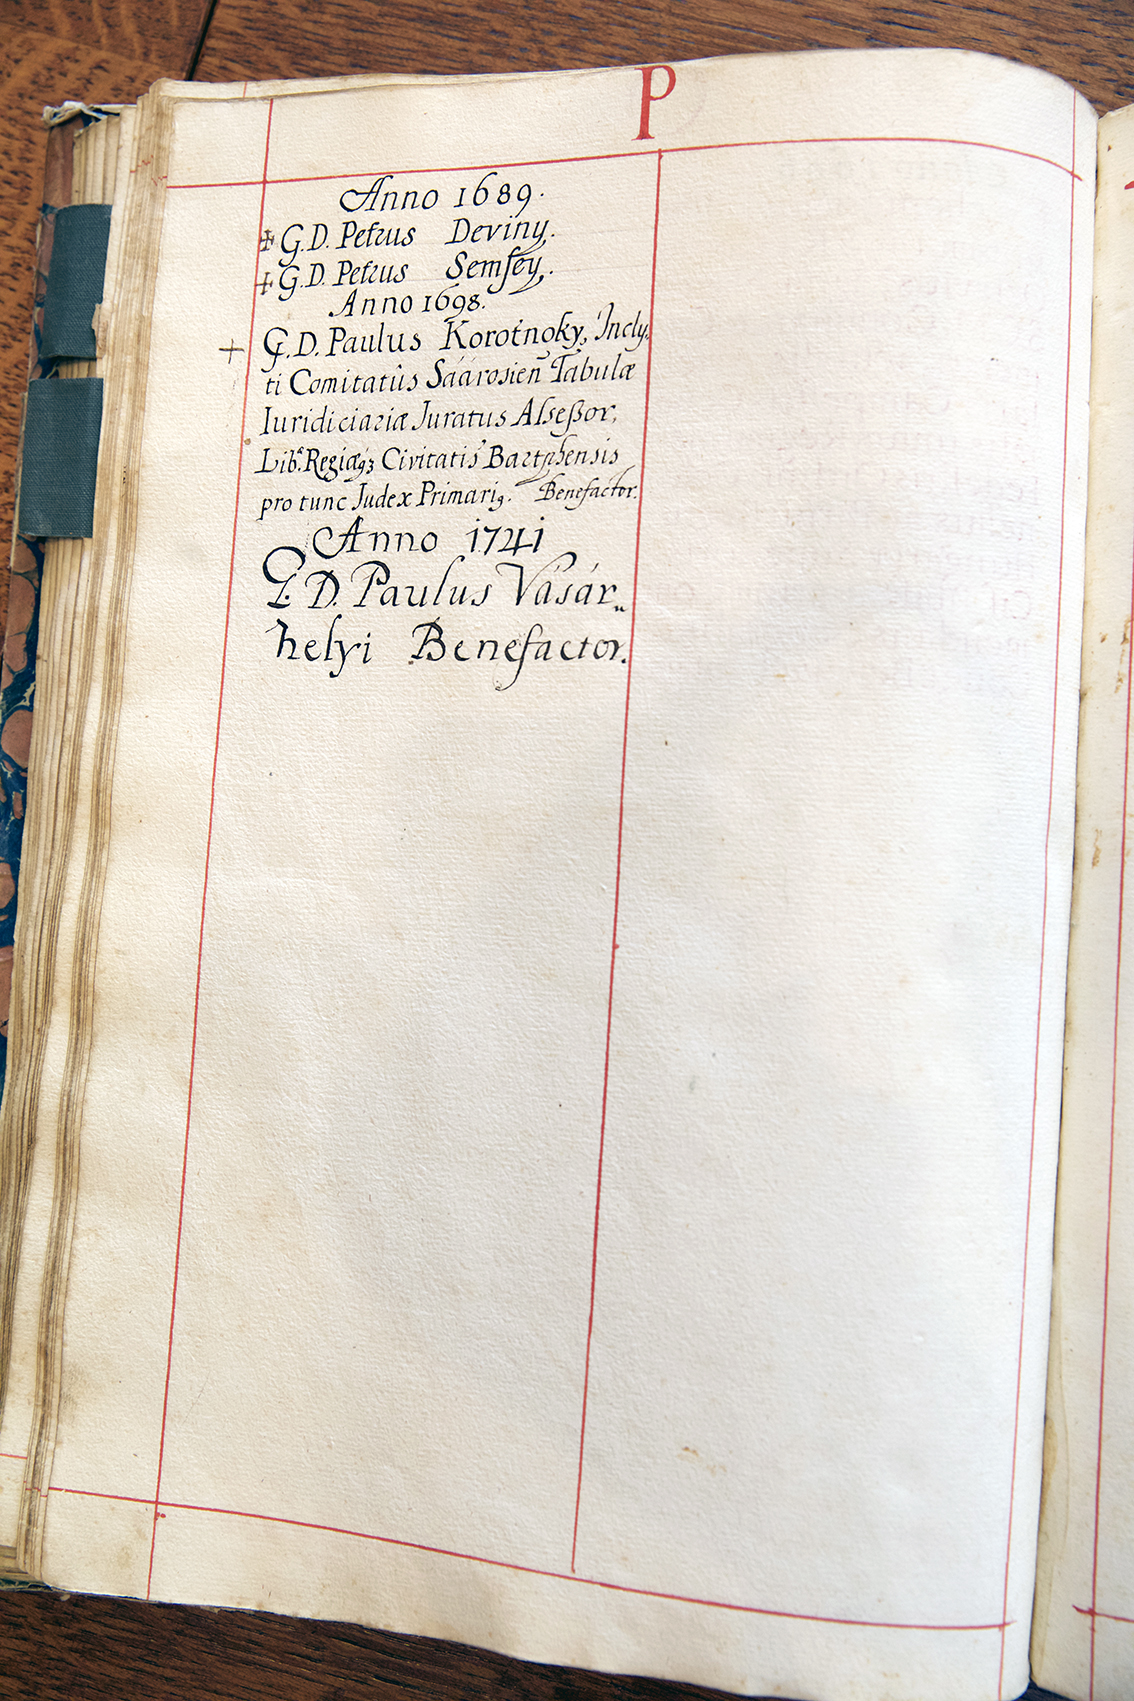 P
Anno 1689.
G.D. Petrus Deviny.
G.D. Petrus Semsey.
Anno 1698.
G.D. Paulus Korotnoky, Incly-
ti Comitatûs Sáárosien̄ Tabulæ
Iuridiciariæ Juratus Asseßor,
Lib. Regiæqꝫ Civitatis Bartphensis
pro tunc Judex Primariꝰ. Benefactor.
Anno 1741
G. D. Paulus Vásár„
helyi Benefactor.